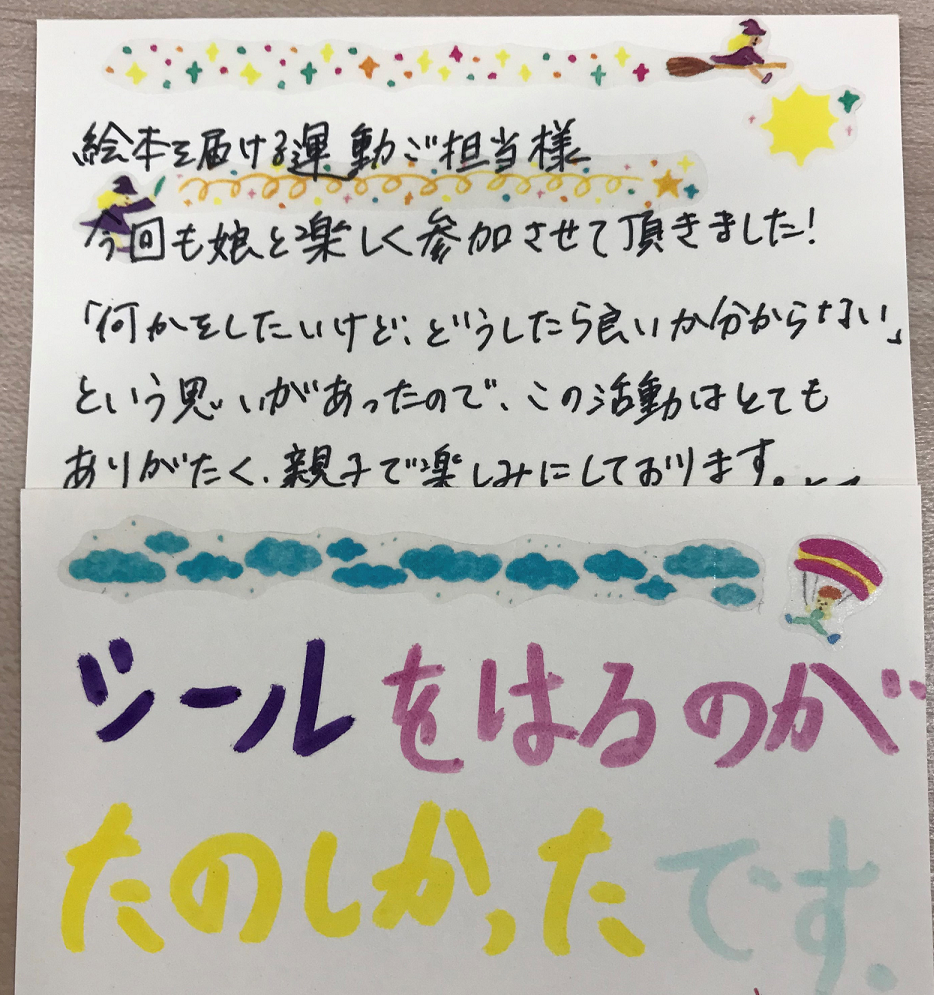 絵本を届ける運動ご担当様
今回も娘と楽しく参加させて頂きました!
「何かをしたいけど、どうしたら良いか分からない」
という思いがあったので、この活動はとても
ありがたく、親子で楽しみにしております。
シールをはるのが
たのしかった です。